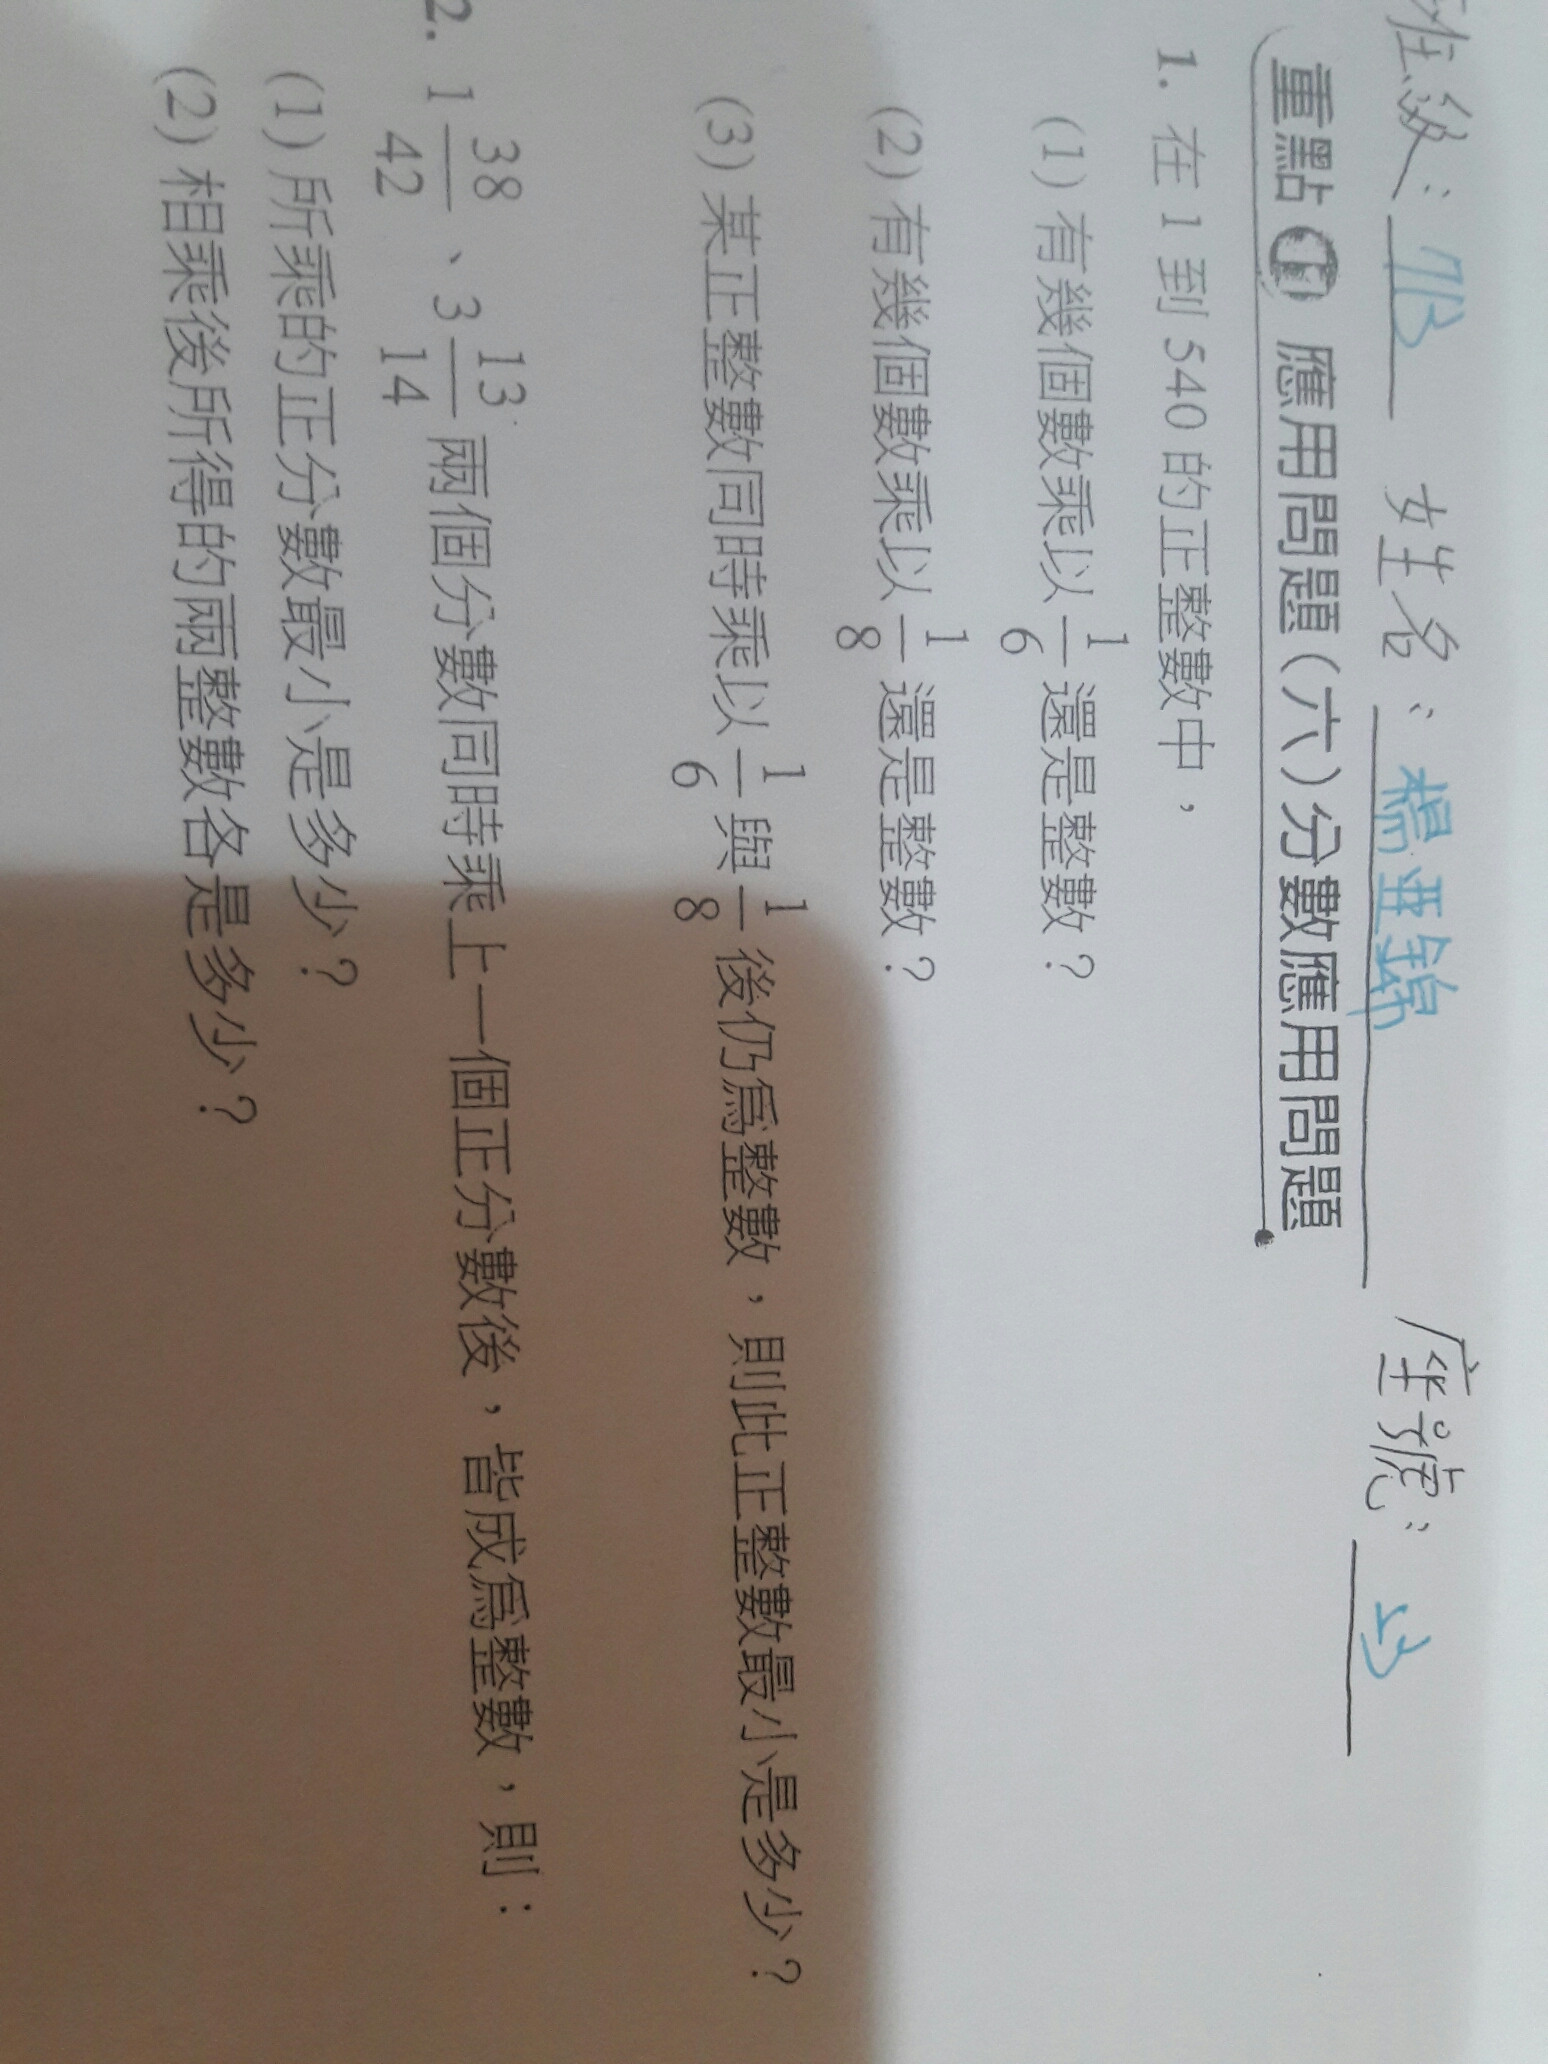 班級：713 姓名：楊亞錦 座號：23
重點 1 應用問題（六）分數應用問題
1. 在 1 到 540 的正整數中，
(1) 有幾個數乘以 1/6 還是整數？
(2) 有幾個數乘以 1/8 還是整數？
(3) 某正整數同時乘以 1/6 與 1/8 後仍為整數，則此正整數最小是多少？
2. 1 38/42 、3 13/14 兩個分數同時乘上一個正分數後，皆成為整數，則：
(1) 所乘的正分數最小是多少？
(2) 相乘後所得的兩整數各是多少？